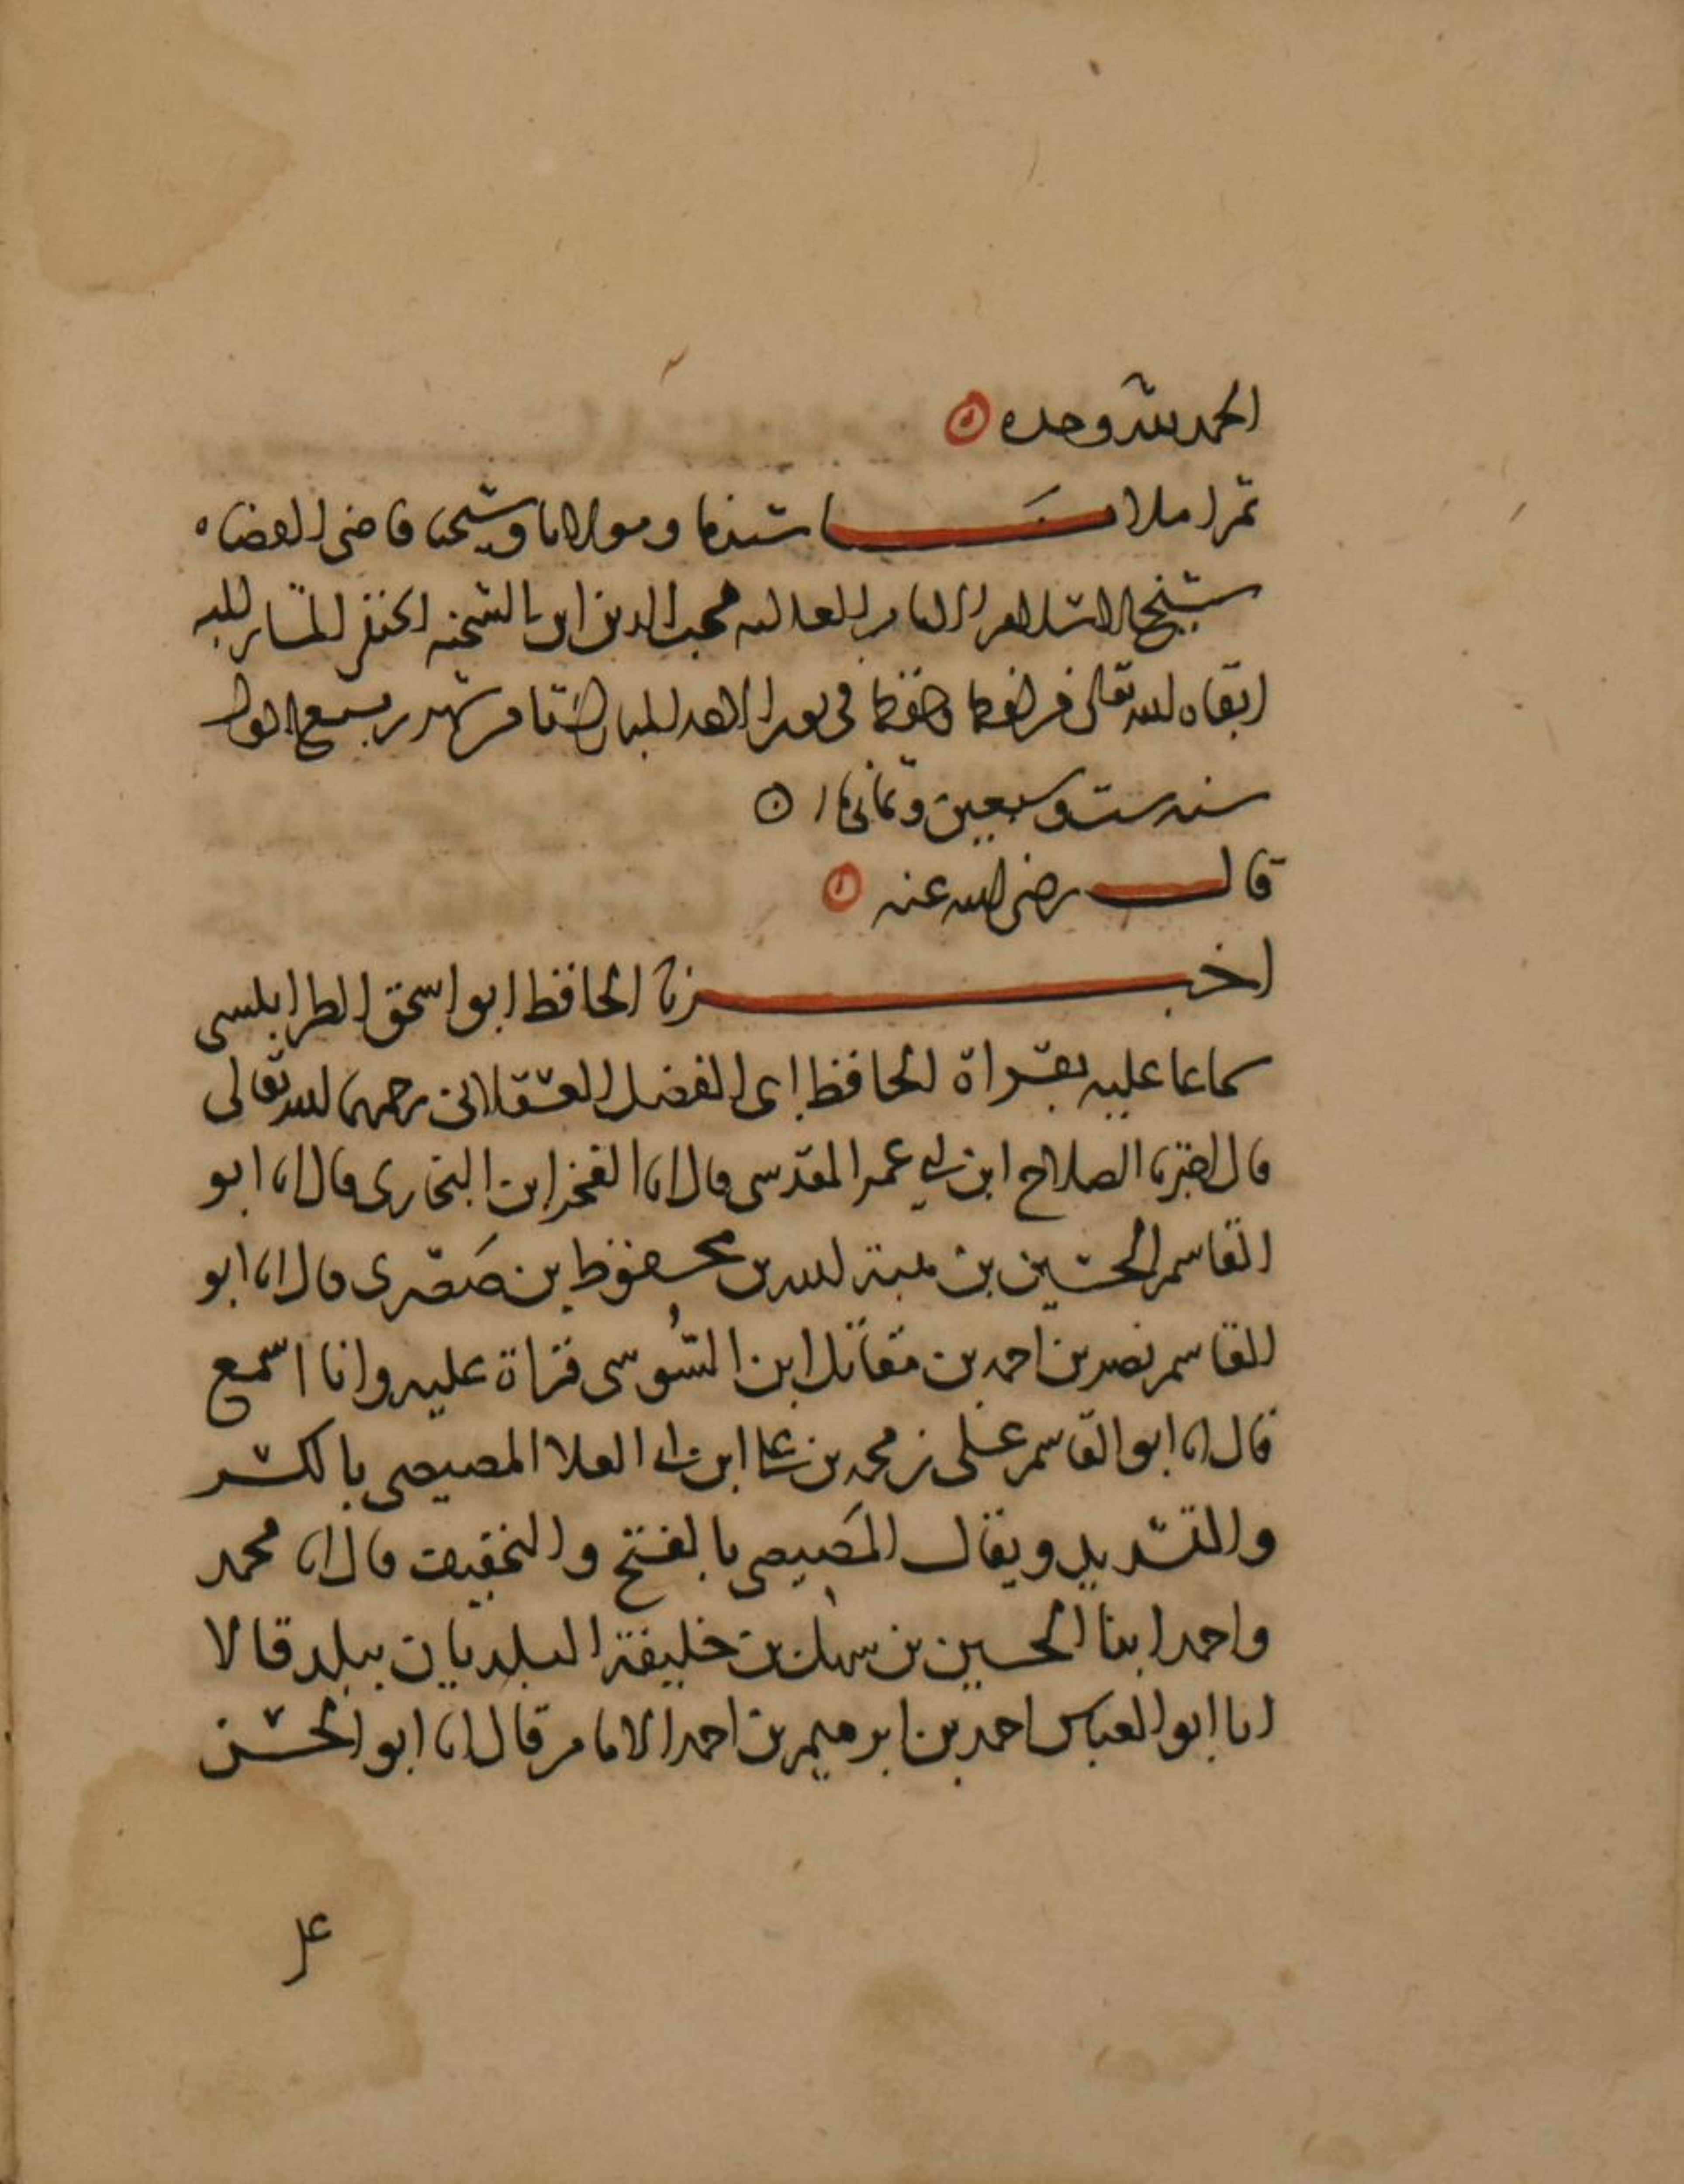 الحمد لله وحده
ثم املا منا سيدنا ومولانا وشيخنا قاضي القضاه
شيخ الاسلام العلامه محب الدين ابن الشحنه الحنفي
ابقاه الله تعالى في يوم الاحد شهر ربيع الاول
سنه ست وسبعين وثمانمائة
قال رضي الله عنه
اخبرنا الحافظ ابو اسحق الطرابلسي
سماعا عليه بقراة الحافظ ابي الفضل العسقلاني رحمهما الله تعالى
قال اخبرنا الصلاح ابن ابي عمر المقدسي قال انا الفخر ابن البخاري قال انا ابو
القاسم الحسين بن هبة الله بن محفوظ بن صصرى قال انا ابو
القاسم نصر بن احمد بن مقاتل ابن السوسي قراة عليه وانا اسمع
قال انا ابو القاسم على بن محمد بن على ابن ابي العلا المصيصي بالكسر
والتشديد ويقال المصيصي بالفتح والتخفيف قال انا محمد
واحمد ابنا الحسين بن سهل بن خليفة البلديان ببلد قالا
انا ابو العباس احمد بن ابرهيم بن احمد الامام قال انا ابو الحسن
على